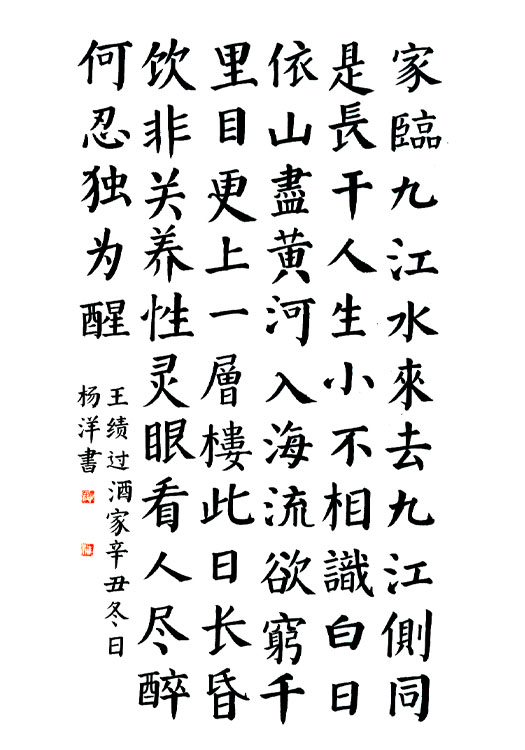 家臨九江水來去九江側同
是長干人生小不相識白日
依山盡黄河入海流欲窮千
里目更上一層樓此日长昏
饮非关养性灵眼看人尽醉
何忍独为醒
王绩过酒家辛丑冬日
杨洋書